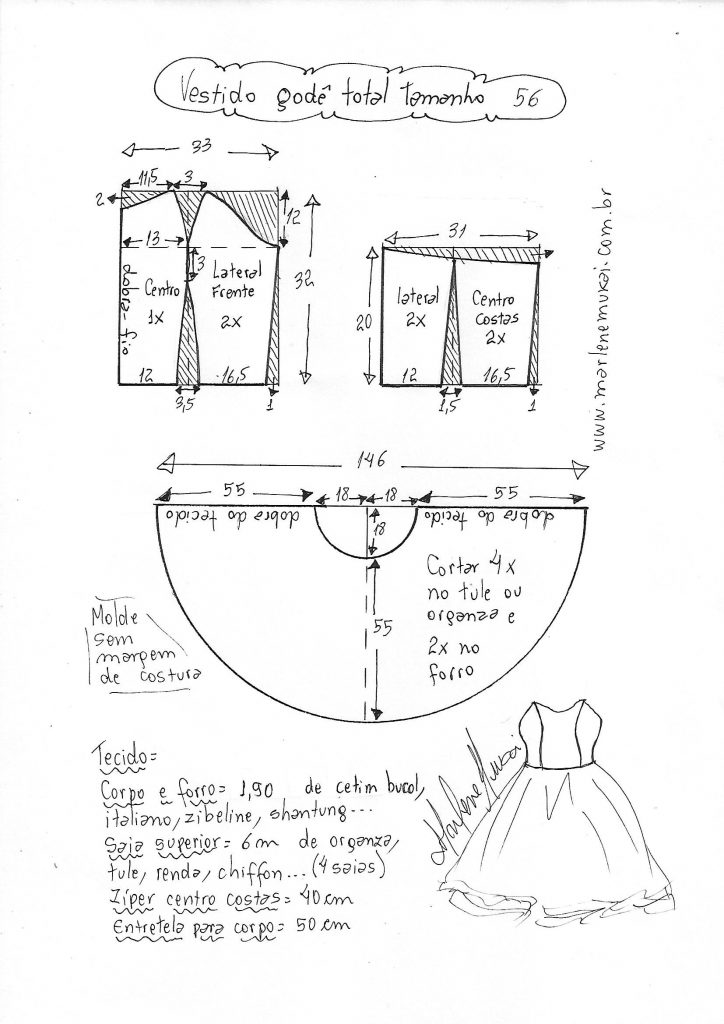 Vestido godê total tamanho 56
33
11,5
3
2
12
13
3
32
dobra-fio
Centro
1x
Lateral
Frente
2x
12
3,5
16,5
1
31
20
lateral
2x
Centro
Costas
2x
12
1,5
16,5
1
www.marlenemukai.com.br
146
55
18
18
55
dobra do tecido
dobra do tecido
18
55
Cortar 4x
no tule ou
organza e
2x no
forro
Molde
sem
margem
de costura
Tecido=
Corpo e forro= 1,90 de cetim bucol,
italiano, zibeline, shantung...
Saia superior= 6m de organza,
tule, renda, chiffon... (4 saias)
Zíper centro costas= 40 cm
Entretela para corpo= 50 cm
Marlene Mukai